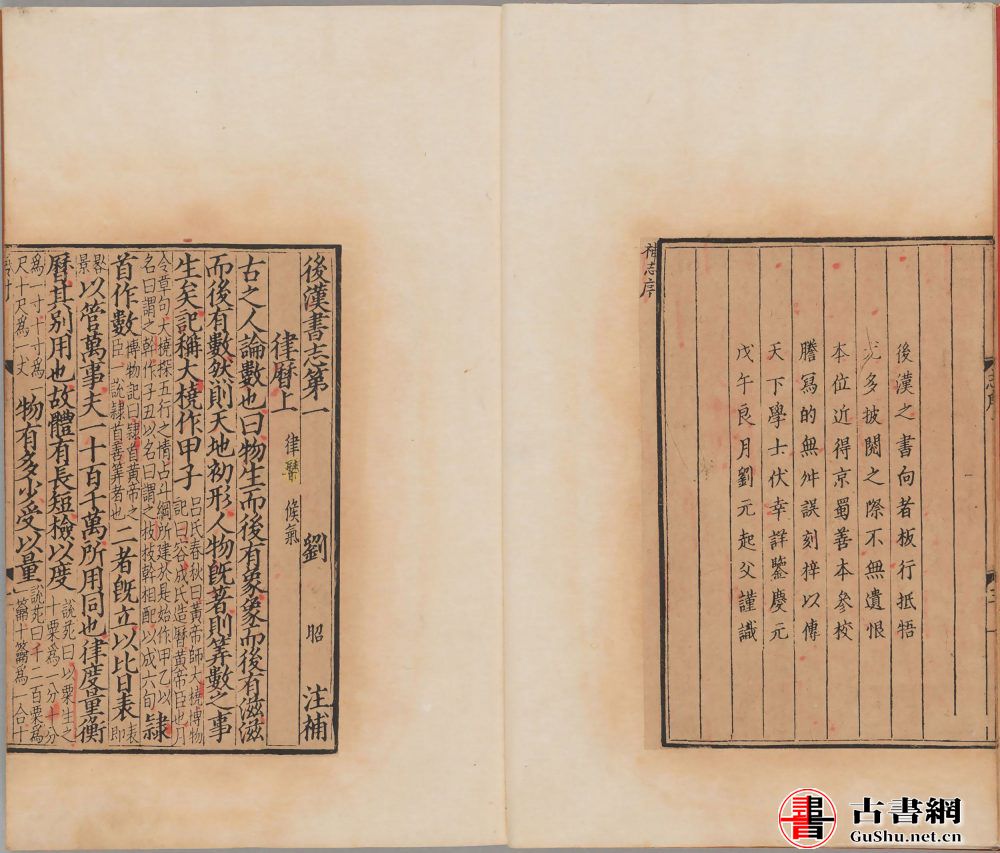 補志序
後漢之書向者板行抵牾
尤多披閱之際不無遺恨
本位近得京蜀善本參校
謄寫的無舛誤刻梓以傳
天下學士伏幸詳鑒慶元
戊午良月劉元起父謹識
後漢書志第一
劉昭注補
律曆上 律準 候氣
古之人論數也曰物生而後有象象而後有滋滋
而後有數然則天地初形人物旣著則筭數之事
生矣記稱大橈作甲子 吕氏春秋曰黄帝師大橈博物
記曰容成氏造曆黄帝臣也月
令章句大橈探五行之情占斗綱所建於是始作甲乙以
名日謂之幹作子丑以名日謂之枝枝幹相配以成六旬 隷
首作數 博物記曰隷首黄帝之
臣一說隷首善筭者也 二者旣立以比日表 表
即
晷
景 以管萬事夫一十百千萬所用同也律度量衡
曆其别用也故體有長短檢以度 說苑曰以粟生之
十粟爲一分十分
爲一寸十寸爲一
尺十尺爲一丈 物有多少受以量 說苑曰千二百粟爲一
籥十籥爲一合十
古書網
GuShu.net.cn